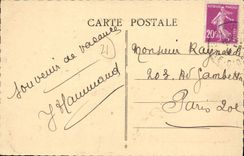 CARTE POSTALE
Souvenir de vacances
J Hammond
21
20c
Monsieur Raymond
203. Av Gambetta
Paris 20e